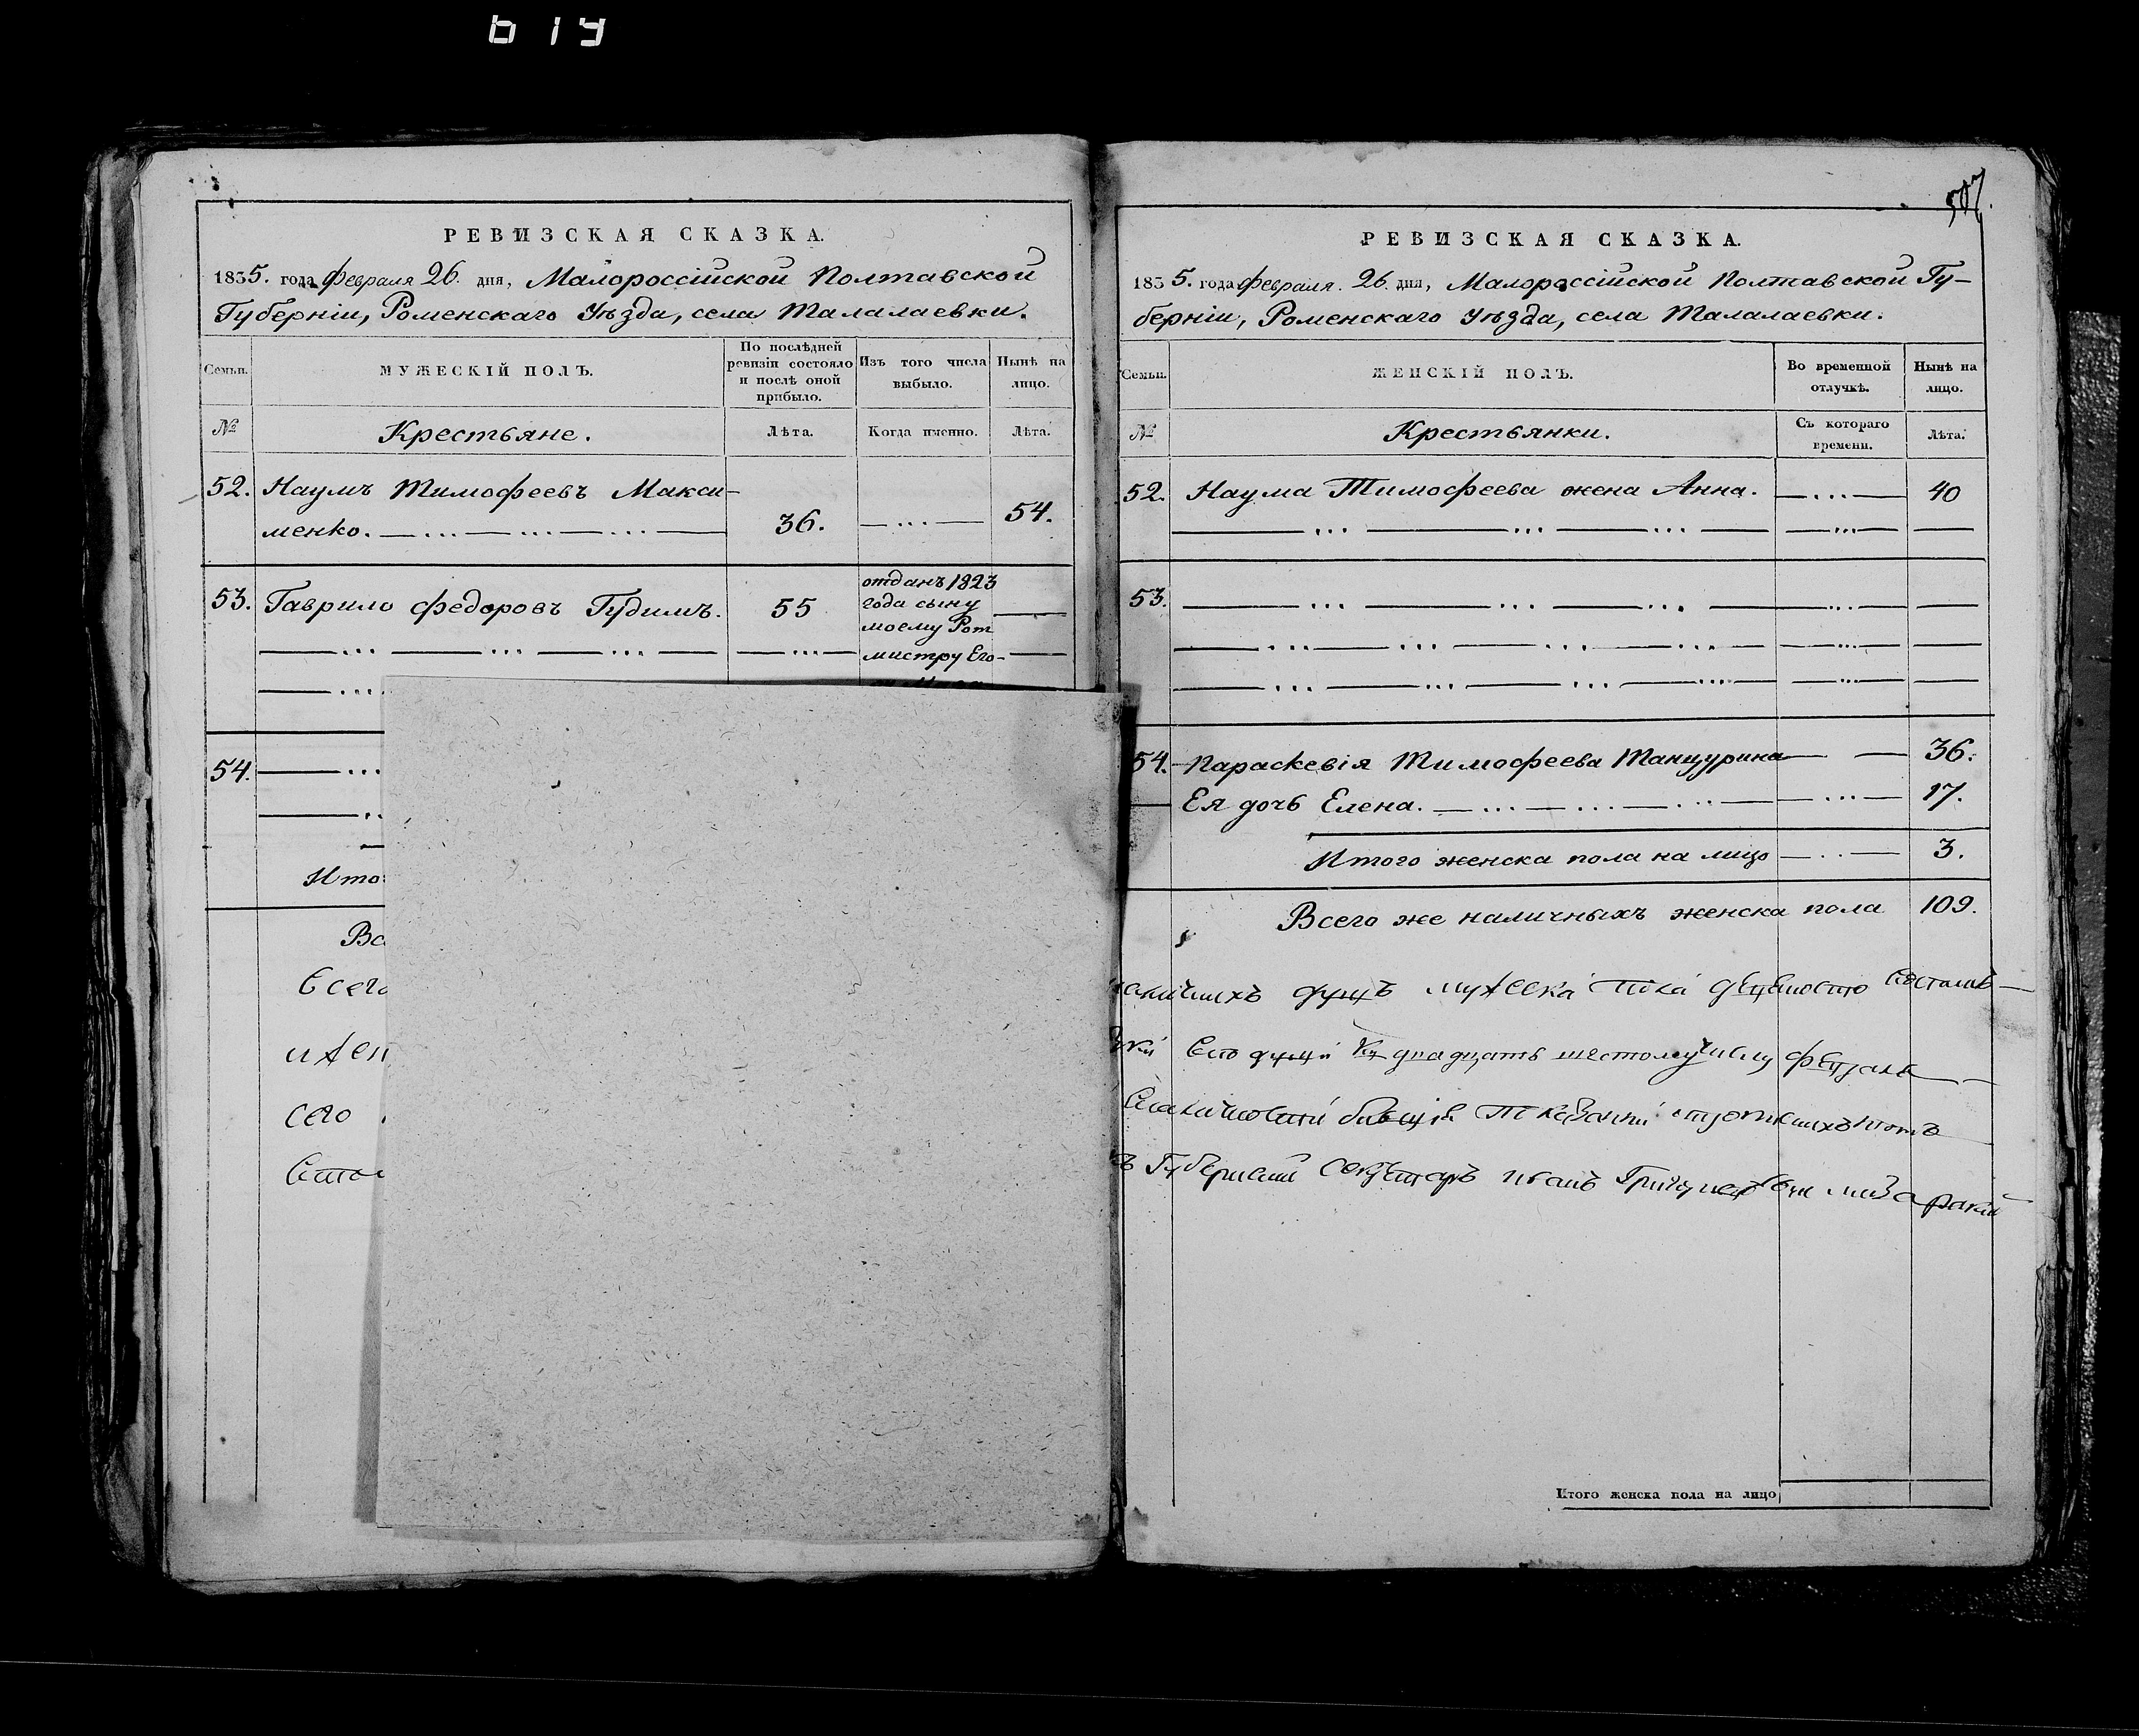 619
РЕВИЗСКАЯ СКАЗКА.
1835. года Февраля 26. дня, Малороссійской Полтавской
Губерніи, Роменскаго Уѣзда, села Талалаевки.
Семьи.
МУЖЕСКІЙ ПОЛЪ.
По послѣдней
ревизіи состояло
и послѣ оной
прибыло.
Изъ того числа
выбыло.
Нынѣ на
лицо.
№
Крестьяне.
Лѣта.
Когда именно.
Лѣта.
52. Наумъ Тимофеевъ Макси-
менко. 36. 54.
53. Гаврило Федоровъ Гудимъ. 55
отданъ 1823
года сыну
моему Рот
мистру Его-
54.
Ито
Вс
Всего
сего
507.
РЕВИЗСКАЯ СКАЗКА.
1835. года Февраля. 26. дня, Малороссійской Полтавской Гу-
берніи, Роменскаго Уѣзда, села Талалаевки.
Семьи.
ЖЕНСКІЙ ПОЛЪ.
Во временной
отлучкѣ.
Нынѣ на
лицо.
№
Крестьянки.
Съ котораго
времени.
Лѣта.
52. Наума Тимофеева жена Анна. 40
53.
54. Параскевія Тимофеева Танцурина 36.
Ея дочь Елена. 17.
Итого женска пола на лицо 3.
Всего же наличныхъ женска пола 109.
душъ мужеска пола
сто души двадцать шестому числу
Губернский Секретарь
Итого женска пола на лицо